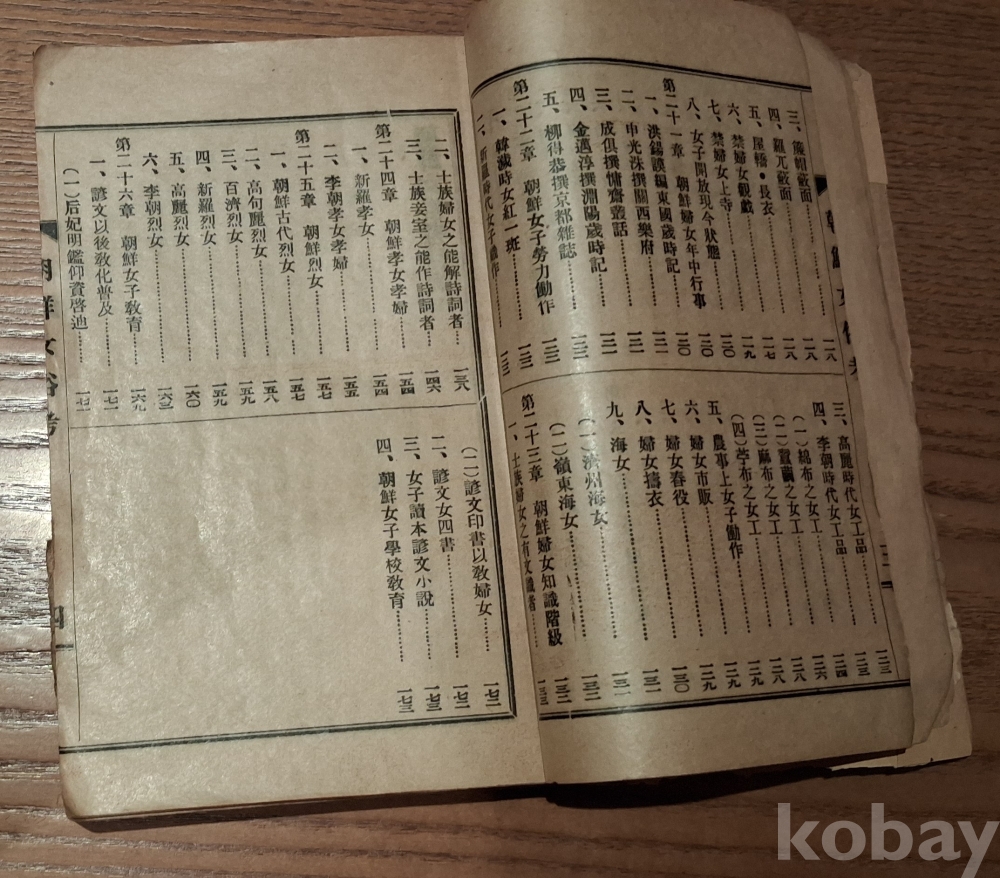 三、簾帽蔽面………一一八
四、羅兀蔽面………一一八
五、屋轎・長衣………一一七
六、禁婦女觀戲………一一九
七、禁婦女上寺………一二〇
八、女子開放現今狀態………一二〇
第二十一章 朝鮮婦女年中行事………一二〇
一、洪錫謨編東國歲時記………一二一
二、申光洙撰關西樂府………一二一
三、成俔撰慵齋叢話………一二一
四、金邁淳撰洌陽歲時記………一二二
五、柳得恭撰京都雜誌………一二二
第二十二章 朝鮮女子勞力働作………一二二
一、韓濊時女紅一斑………一二三
二、新羅時代女子織作
三、高麗時代女工品………一二三
四、李朝時代女工品………一二三
(一)綿布之女工………一二四
(二)蠶繭之女工………一二六
(三)麻布之女工………一二八
(四)苧布之女工………一二八
五、農事上女子働作………一二九
六、婦女市販………一二九
七、婦女舂役………一二九
八、婦女擣衣………一三〇
九、海女………一三一
(一)濟州海女………一三一
(二)嶺東海女………一三二
第二十三章 朝鮮婦女知識階級………一三二
一、士族婦女之有文識者………一三三
二、士族婦女之能解詩詞者………一三八
三、士族妾室之能作詩詞者………一四六
第二十四章 朝鮮孝女孝婦………一五四
一、新羅孝女………一五四
二、李朝孝女孝婦………一五五
第二十五章 朝鮮烈女………一五七
一、朝鮮古代烈女………一五七
二、高句麗烈女………一五八
三、百濟烈女………一五九
四、新羅烈女………一五九
五、高麗烈女………一六〇
六、李朝烈女………一六三
第二十六章 朝鮮女子敎育………一六九
一、諺文以後敎化普及………一七一
(一)后妃明鑑仰資啓迪………一七二
(二)諺文印書以敎婦女………一七二
二、諺文女四書………一七二
三、女子讀本諺文小說………一七三
四、朝鮮女子學校敎育………一七三
朝鮮女俗考
四
kobay